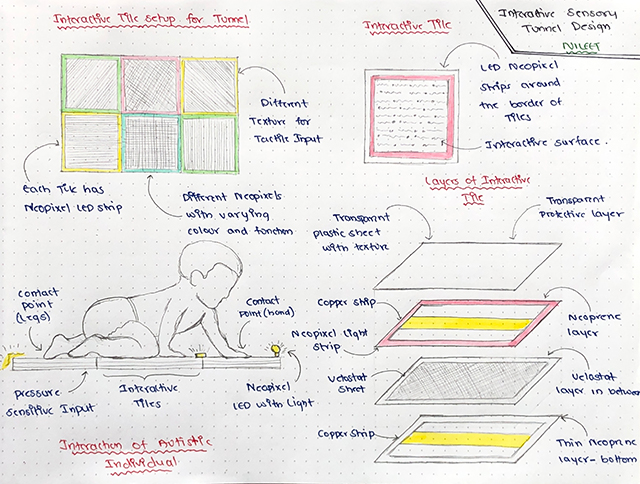 Interactive Tile setup for Tunnel
Interactive Tile
Interactive Sensory
Tunnel Design
NILEET
Different
Texture for
Tactile Input
Each Tile has
Neopixel LED strip
Different Neopixels
with varying
colour and function
LED Neopixel
strips around
the border of
Tiles
Interactive surface.
Layers of Interactive
Tile
Transparent
plastic sheet
with texture
Transparent
Protective layer
Copper strip
Neopixel Light
strip
Neoprene
layer
Velostat
sheet
Velastat
layer in between
Copper strip
Thin Neoprene
layer- bottom
Contact
point
(Legs)
Contact
point (hand)
Pressure
sensitive Input
Interactive
Tiles
Neopixel
LED with Light
Interaction of Autistic
Individual